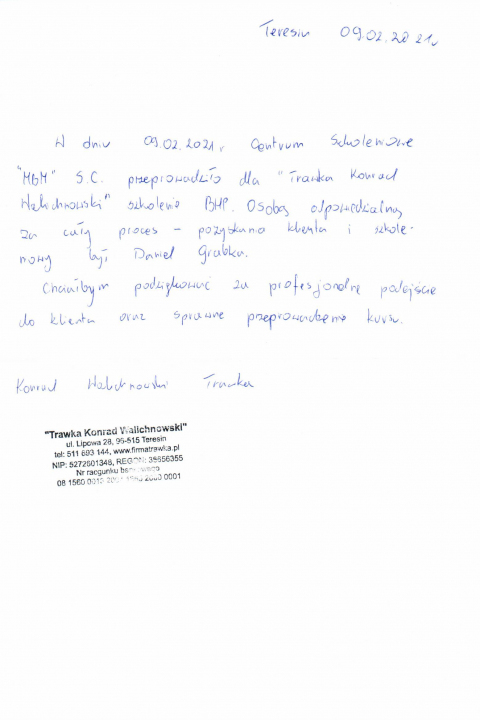 Teresin 09.02.2021r
W dniu 09.02.2021r Centrum Szkoleniowe
"MBM" S.C. przeprowadziło dla "Trawka Konrad
Walichnowski" szkolenie BHP. Osobą odpowiedzialną
za cały proces - pozyskania klienta i szkole-
niowy był Daniel Grabka.
Chciałbym podziękować za profesjonalne podejście
do klienta oraz sprawne przeprowadzenie kursu.
Konrad Walichnowski Trawka
"Trawka Konrad Walichnowski"
ul. Lipowa 28, 96-515 Teresin
tel: 511 693 144, www.firmatrawka.pl
NIP: 5272601348, REGON:
Nr rachunku
08 1560 2000 0001